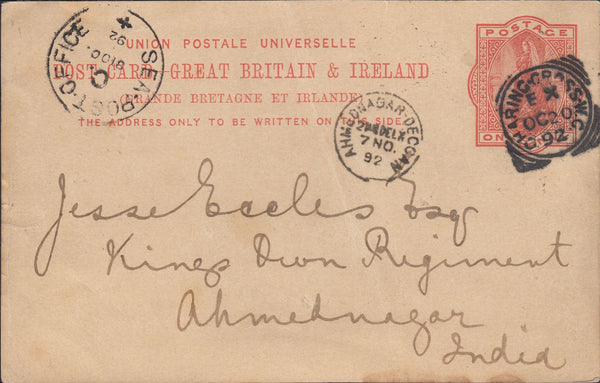 UNION POSTALE UNIVERSELLE
POST CARD-GREAT BRITAIN & IRELAND
(GRANDE BRETAGNE ET IRLANDE)
THE ADDRESS ONLY TO BE WRITTEN ON THIS SIDE.
POSTAGE
ONE
SEA POST OFFICE
C
92
AHMEDNAGAR-DECCAN
7 NO.
92
CHARING-CROSS.W.C
EX
OC20
92
Jesse Eccles Esq
Kings Own Regiment
Ahmednagar
India